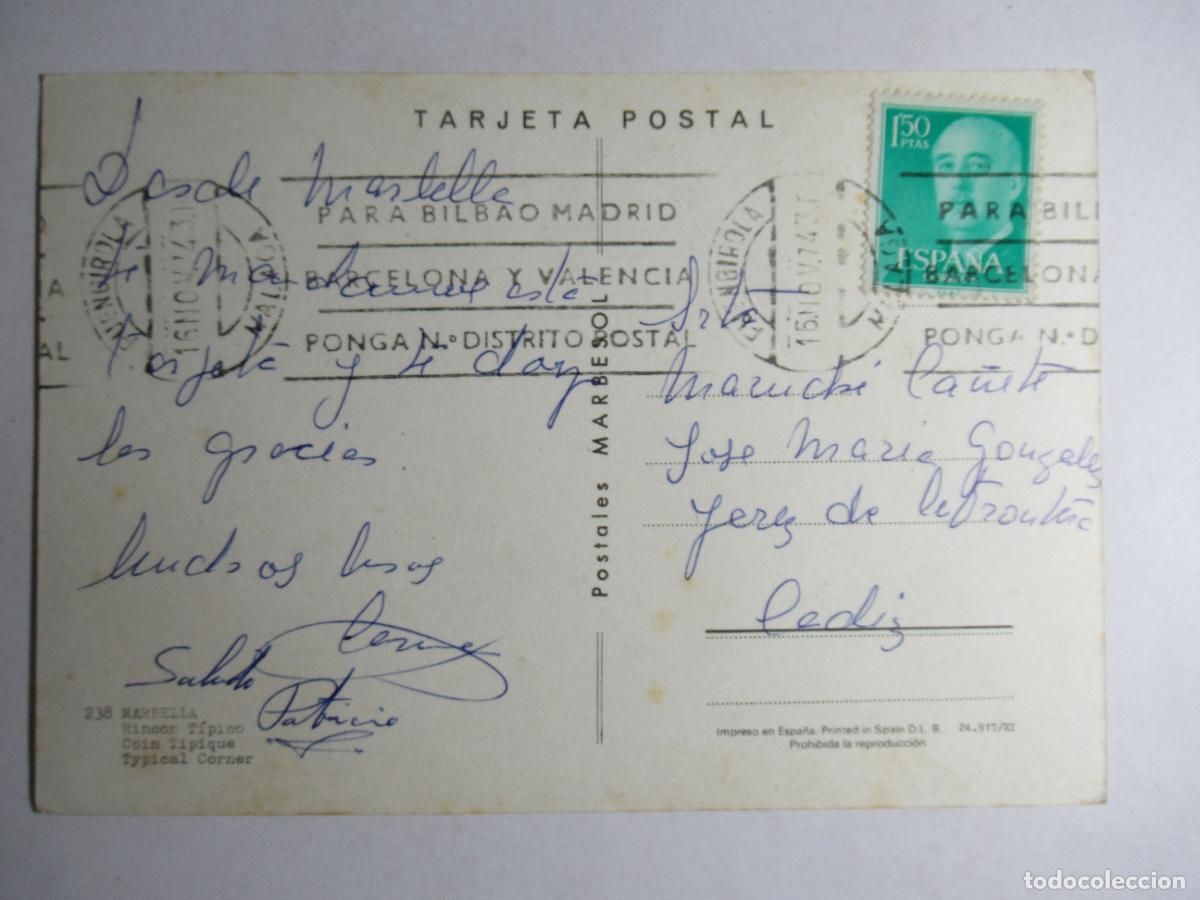 TARJETA POSTAL
1'50
PTAS
ESPAÑA
Desde Marbella
te mandamos esta
Tarjeta y te doy
las gracias
Muchos besos
Saludo
Patricio
FUENGIROLA
16 NOV 74 3T
MALAGA
PARA BILBAO MADRID
BARCELONA Y VALENCIA
PONGA N.º DISTRITO POSTAL
FUENGIROLA
16 NOV 74 3T
MALAGA
PARA BIL
BARCELONA
PONGA N.º D
A
AL
Postales MARBESOL
Srta
Maruchi Cañete
Jose Maria Gonzalez
Jerez de la Frontera
Cadiz
238 MARBELLA
Rincon Típico
Coin Tipique
Typical Corner
Impreso en España. Printed in Spain D. L. B. 24.917/XI
Prohibida la reproducción
todocoleccion